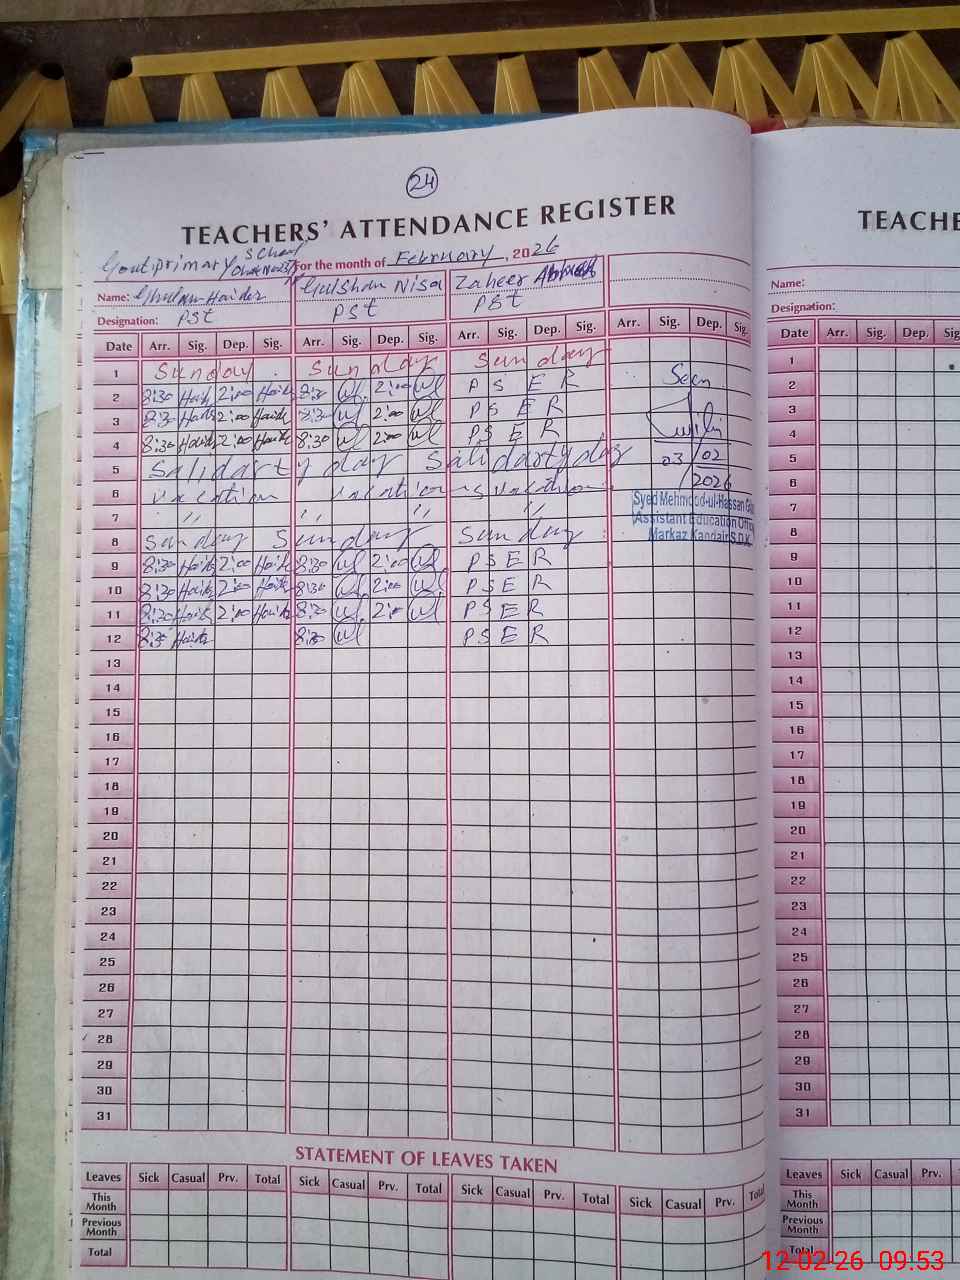 24
TEACHERS' ATTENDANCE REGISTER
Govt primary School
For the month of February, 2026
Name: Ghulam Haider Gulshan Nisa Zaheer
Designation: PSt PSt PSt
Date Arr. Sig. Dep. Sig. Arr. Sig. Dep. Sig. Arr. Sig. Dep. Sig. Arr. Sig. Dep. Sig.
1 Sunday Sunday Sunday
2 8:30 Haider 2:00 Haider 8:30 2:00 P S E R Seen
3 8:30 Haider 2:00 Haider 8:30 2:00 P S E R
4 8:30 Haider 2:00 Haider 8:30 2:00 P S E R
5 Salidarty day Salidarty day 03/02
6 vacation vacation vacation /2026
7 " " " "
8 Sunday Sunday Sunday
Syed Mehmood-ul-Hassan
Assistant Education Officer
Markaz Kandair S.D.K
9 8:30 Haider 2:00 Haider 8:30 2:00 P S E R
10 8:30 Haider 2:00 Haider 8:30 2:00 P S E R
11 8:30 Haider 2:00 Haider 8:30 2:00 P S E R
12 8:30 Haider 8:30 P S E R
13
14
15
16
17
18
19
20
21
22
23
24
25
26
27
28
29
30
31
STATEMENT OF LEAVES TAKEN
Leaves Sick Casual Prv. Total Sick Casual Prv. Total Sick Casual Prv. Total Sick Casual Prv. Total
This Month
Previous Month
Total
TEACHE
Name:
Designation:
Date Arr. Sig. Dep. Sig
1
2
3
4
5
6
7
8
9
10
11
12
13
14
15
16
17
18
19
20
21
22
23
24
25
26
27
28
29
30
31
Leaves Sick Casual Prv.
This Month
Previous Month
Total
12-02-26 09:53